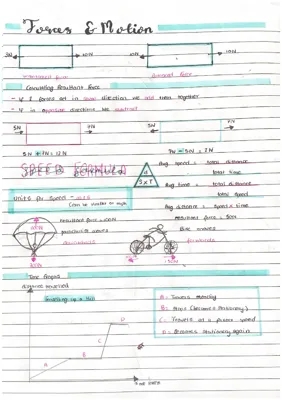 Forces & Motion
5N 10N 10N 10N
Unbalanced force Balanced force
Calculating Resultant force
- If forces act in same direction we add them together
- If in opposite directions we subtract
5N 7N 5N 7N
5N + 7N = 12N 7N - 5N = 2N
SPEED FORMULA
d
s x t
Avg speed = total distance
total time
Avg time = total distance
total speed
Avg distance = speed x time
Units for Speed - m/s
resultant force = 100N
parachute moves
downwards
resultant force = 50N
Bike moves
forwards
Time Graphs
distance travelled
A - Travels steadily
B - Stops (becomes stationary)
C - Travels at a faster speed
D - Becomes stationary again
A
B
C
D
time taken